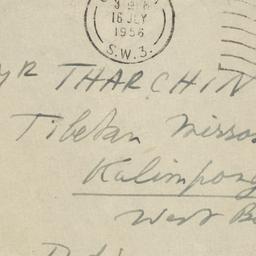 15 JLY
1956
S.W.3.
THARCHIN
Tibetan Mirro
Kalimpong
West B